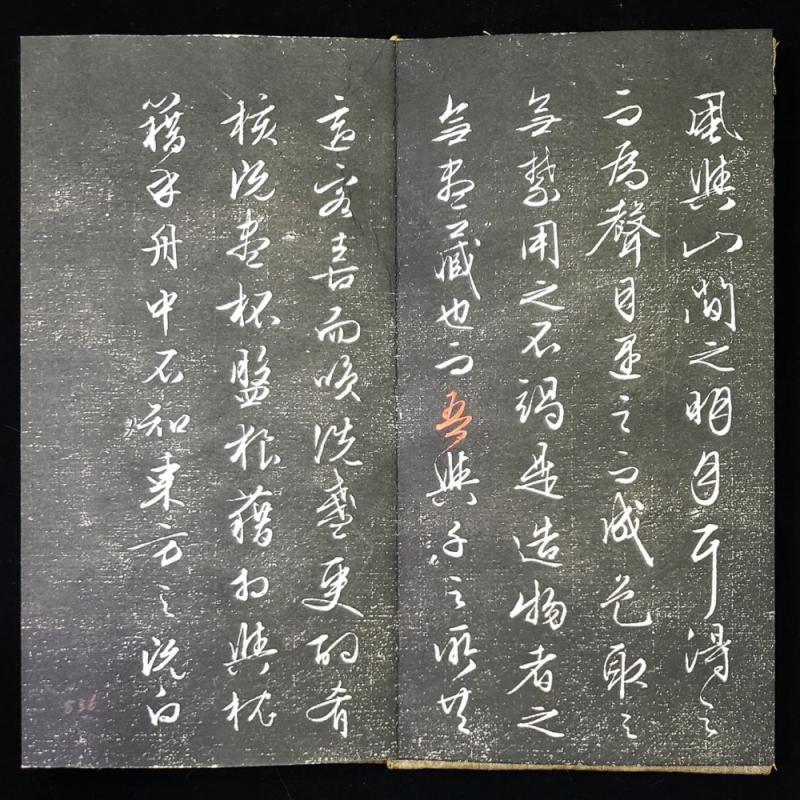 風與山間之明月耳得之
而為聲目遇之而成色取之
無禁用之不竭是造物者之
無盡藏也而吾與子之所共
適客喜而笑洗盞更酌肴
核既盡杯盤狼藉相與枕
藉乎舟中不知東方之既白
536